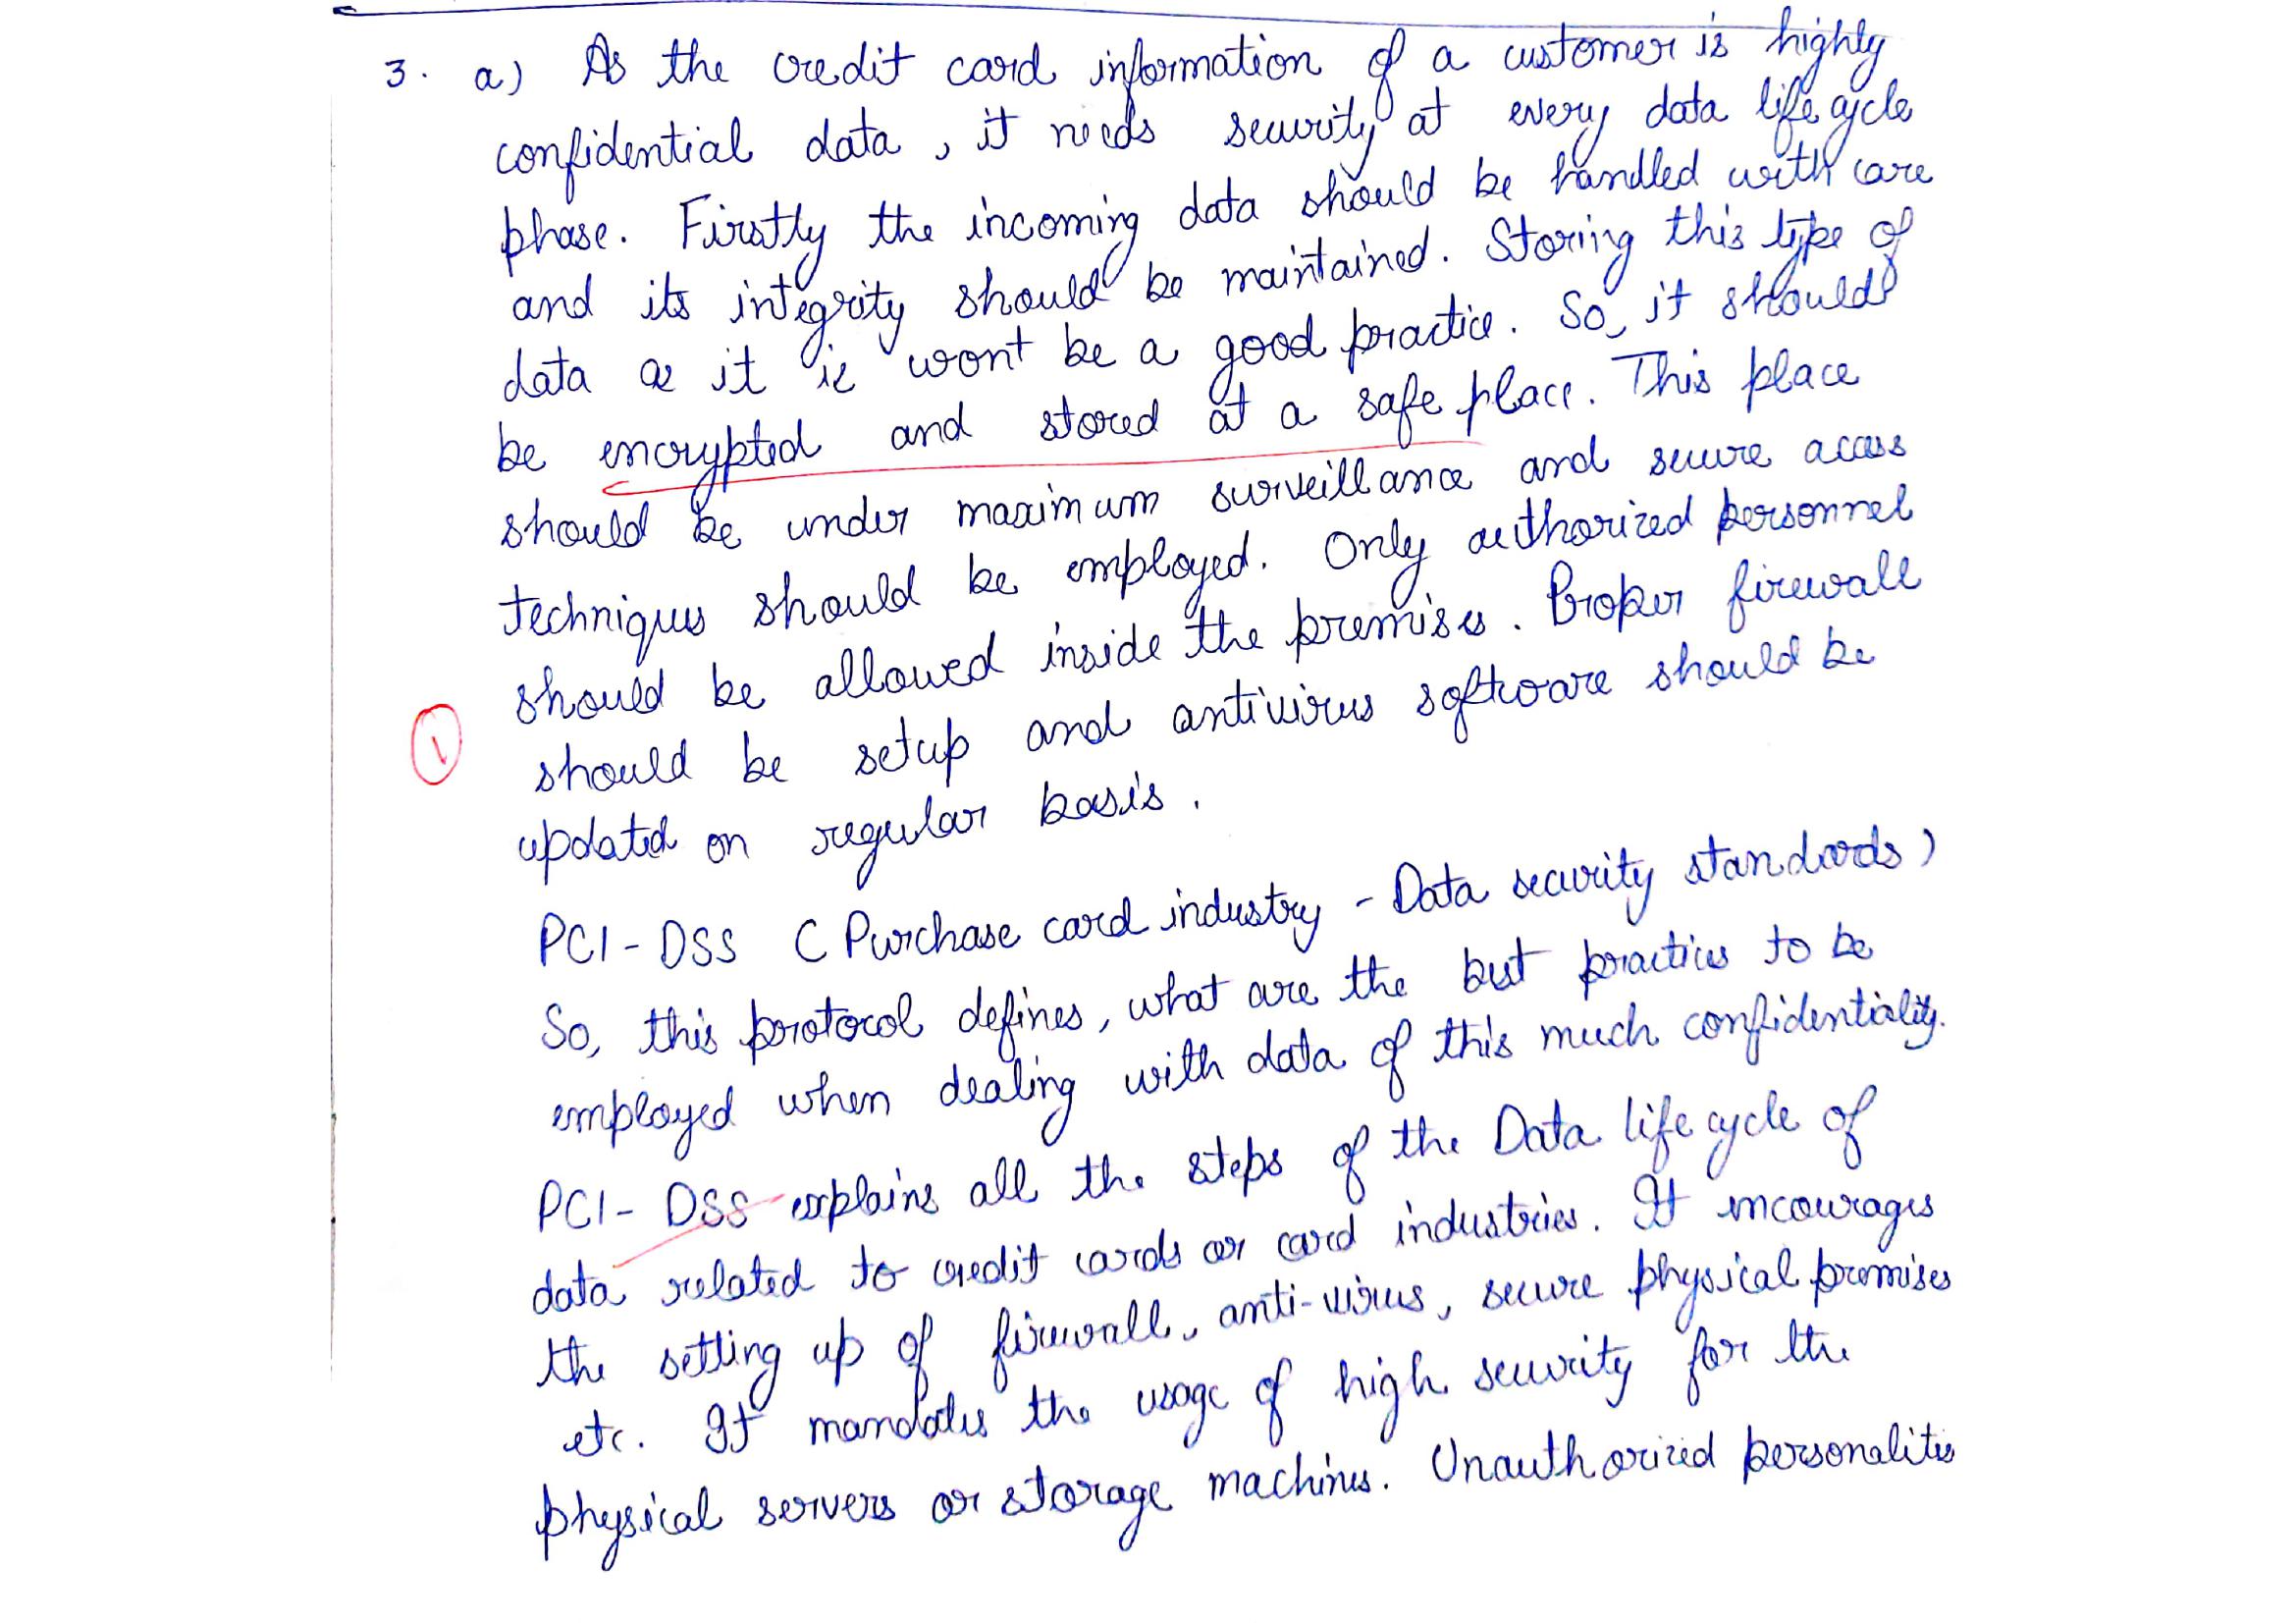 3. a) As the credit card information of a customer is highly
confidential data, it needs security at every data life cycle
phase. Firstly the incoming data should be handled with care
and its integrity should be maintained. Storing this type of
data as it is wont be a good practice. So, it should
be encrypted and stored at a safe place. This place
should be under maximum surveillance and secure access
techniques should be employed. Only authorized personnel
should be allowed inside the premises. Proper firewall
should be setup and antivirus software should be
updated on regular basis.
1
PCI-DSS (Purchase card industry - Data security standards)
So, this protocol defines, what are the best practices to be
employed when dealing with data of this much confidentiality.
PCI-DSS explains all the steps of the Data life cycle of
data related to credit cards or card industries. It encourages
the setting up of firewall, anti-virus, secure physical premises
etc. It mandates the usage of high security for the
physical servers or storage machines. Unauthorized personalities